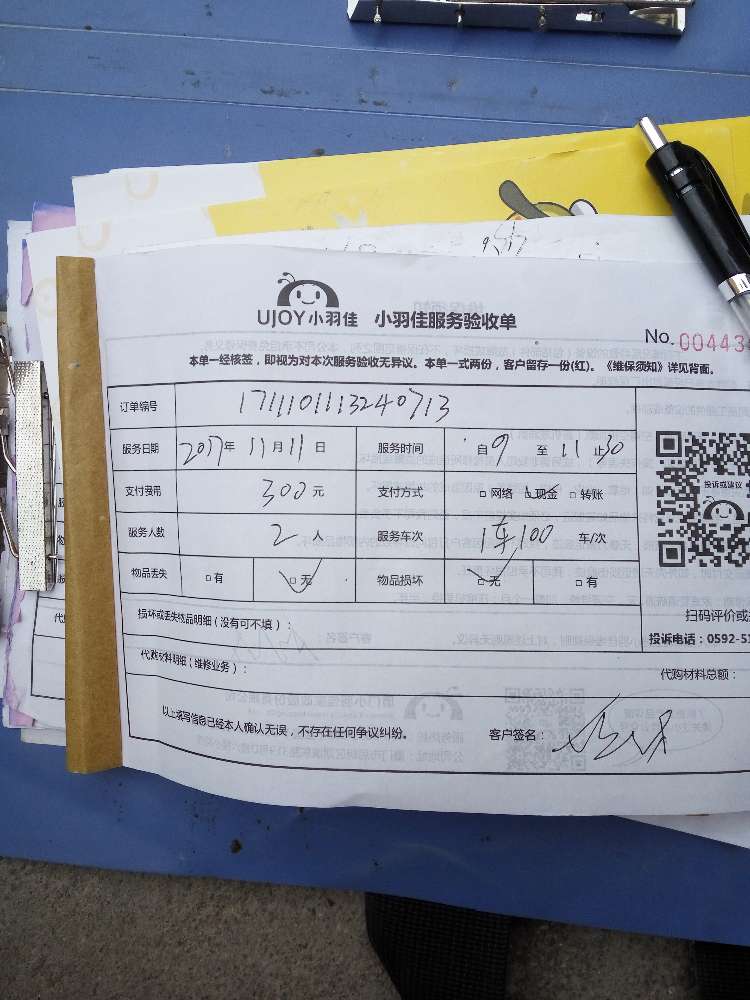 UJOY小羽佳 小羽佳服务验收单
No. 00443
本单一经核签，即视为对本次服务验收无异议。本单一式两份，客户留存一份(红)。《维保须知》详见背面。
订单编号 1711101113240713
服务日期 2017年 11月11日 服务时间 自9至11止30
支付费用 300元 支付方式 □网络 ☑现金 □转账
服务人数 2人 服务车次 1车100 车/次
物品丢失 □有 ☑无 物品损坏 ☑无 □有
投诉或建议
损坏或丢失物品明细（没有可不填）：
扫码评价或
投诉电话：0592-5
代购材料明细（维修业务）：
代购材料总额：
以上填写信息已经本人确认无误，不存在任何争议纠纷。 客户签名：